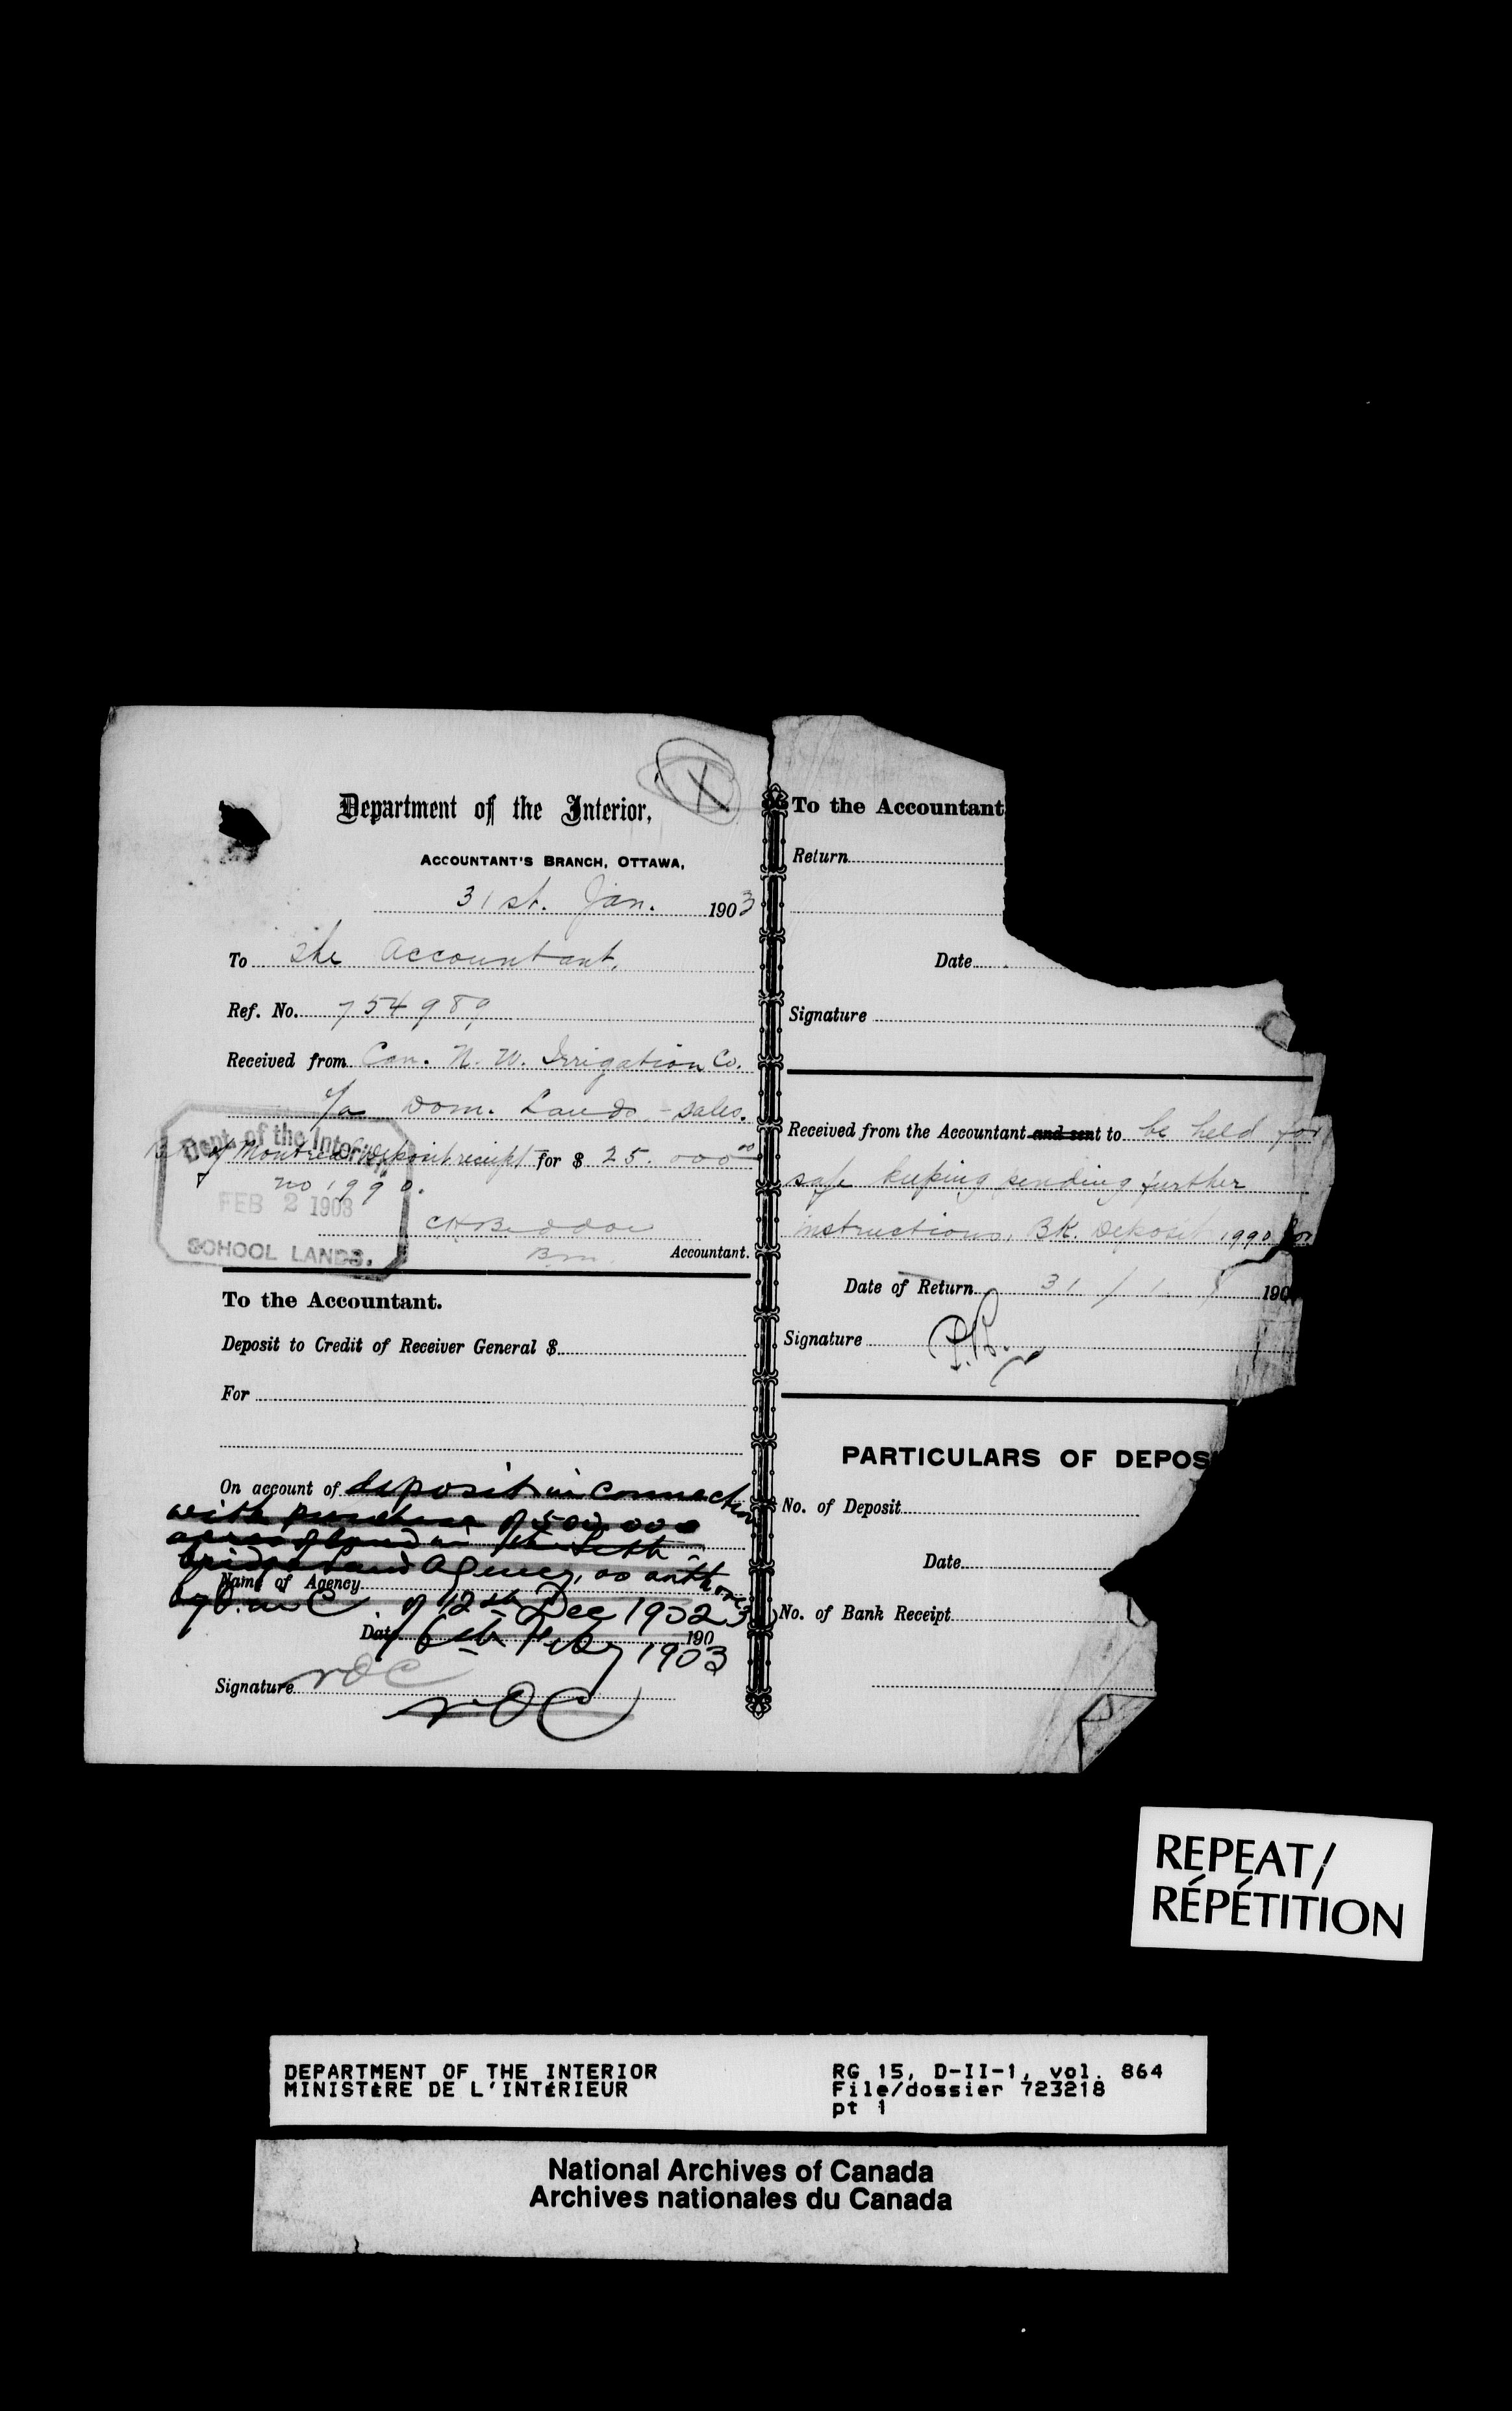 X
Department of the Interior,
ACCOUNTANT'S BRANCH, OTTAWA,
31st. Jan. 1903
To The Accountant.
Ref. No. 754989
Received from Can. N. W. Irrigation Co.
o/a Dom. Lands - sales.
Bk of Montreal Deposit receipt for $ 25.000 00
no 1990.
Dept. of the Interior
FEB 2 1903
SCHOOL LANDS.
C H Beddoe
Accountant.
To the Accountant.
Deposit to Credit of Receiver General $
For
On account of deposit in connection
with purchase of 500.000
acres of land in the Leth-
bridge Land Agency, as author
Name of Agency
by O. in C of 12th Dec 1902
Date 6th Feby 1903 190
Signature
To the Accountant
Return
Date
Signature
Received from the Accountant and sent to be held for
safe keeping pending further
instructions, BK. Deposit 1990 for
Date of Return 31 / 1 190
Signature
PARTICULARS OF DEPOS
No. of Deposit
Date
No. of Bank Receipt
REPEAT/
RÉPÉTITION
DEPARTMENT OF THE INTERIOR
MINISTÈRE DE L'INTÉRIEUR
RG 15, D-II-1, vol. 864
File/dossier 723218
pt 1
National Archives of Canada
Archives nationales du Canada